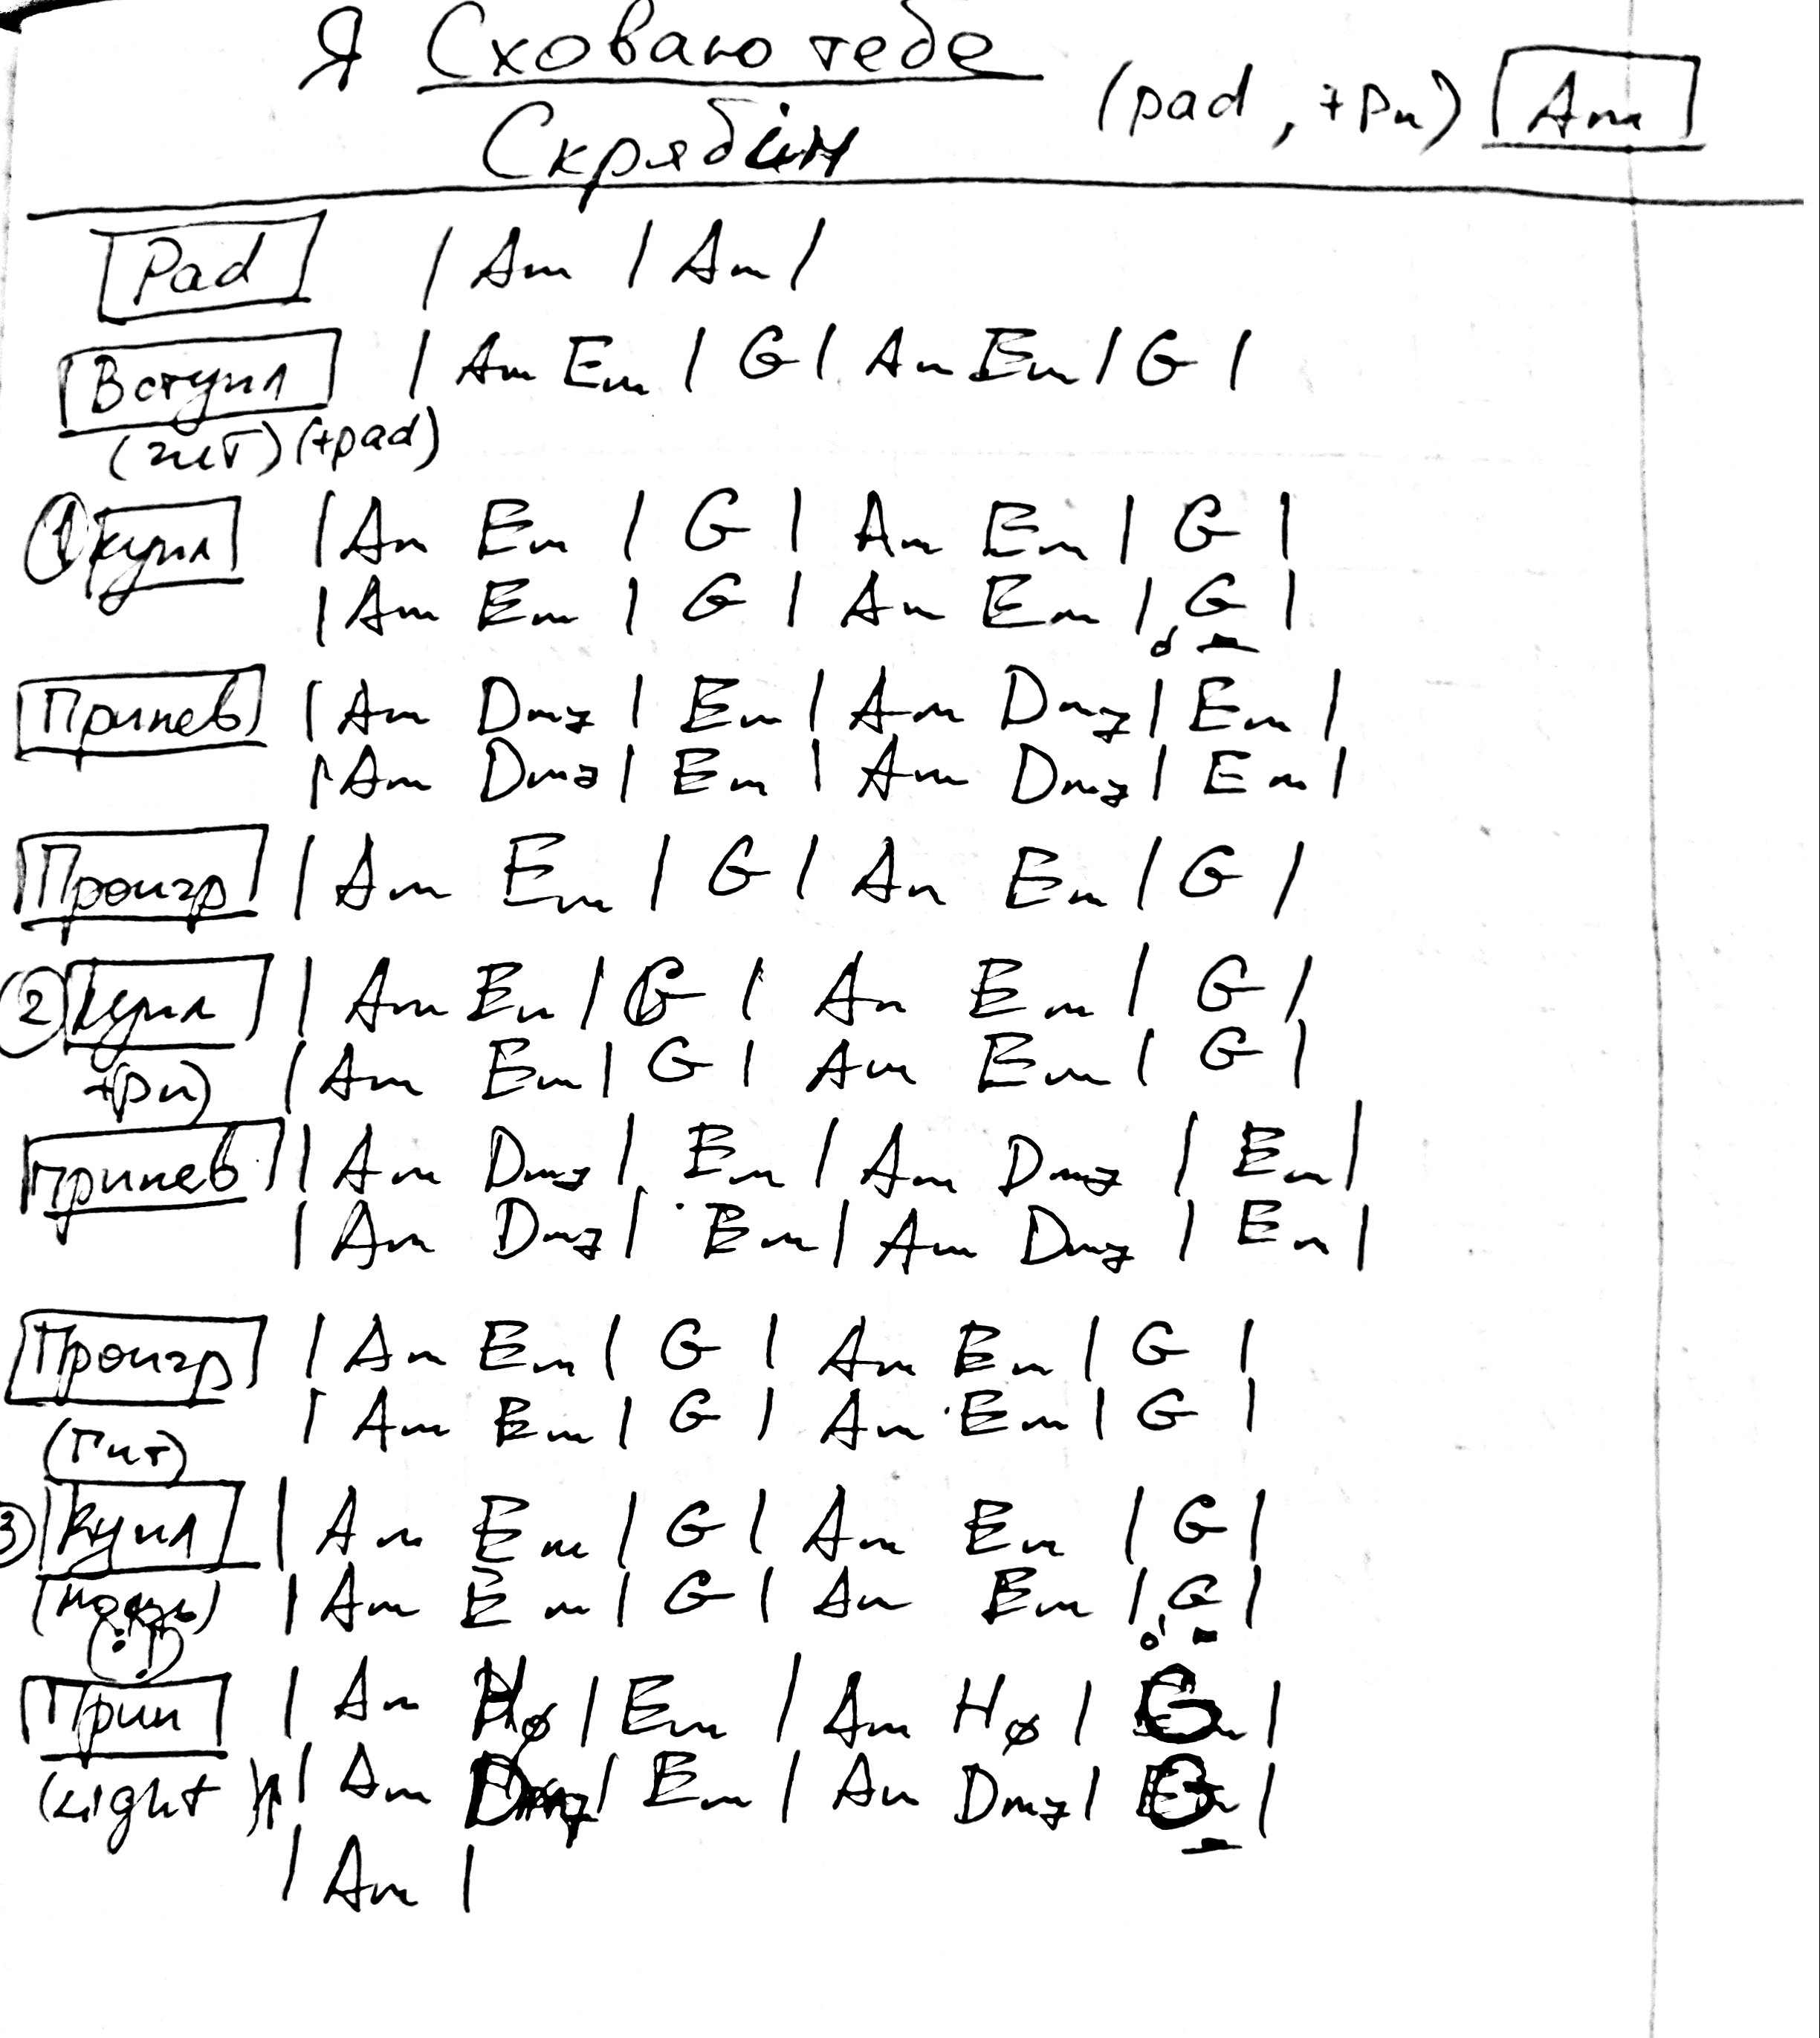 Я Сховаю тебе
Скрябін (pad, +pn) Am
Pad | Am | Am |
Вступл | Am Em | G | Am Em | G |
(гит) (+pad)
① Купл | Am Em | G | Am Em | G |
| Am Em | G | Am Em | G |
Припев | Am Dm7 | Em | Am Dm7 | Em |
| Am Dm7 | Em | Am Dm7 | Em |
Проигр | Am Em | G | Am Em | G |
② Купл | Am Em | G | Am Em | G |
(+pn) | Am Em | G | Am Em | G |
Припев | Am Dm7 | Em | Am Dm7 | Em |
| Am Dm7 | Em | Am Dm7 | Em |
Проигр | Am Em | G | Am Em | G |
| Am Em | G | Am Em | G |
(Гит)
③ Купл | Am Em | G | Am Em | G |
| Am Em | G | Am Em | G |
Прип | Am Hø | Em | Am Hø | G |
(Light) | Am | Em | Am Dm7 | |
| Am |